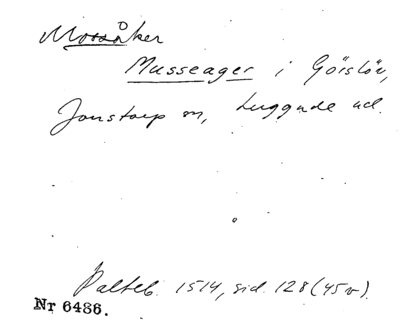 Mossåker
Musseager i Görslöv,
Jonstorp sn, Luggude hd.
Palteb. 1514, sid. 128 (45v).
Nr 6436.